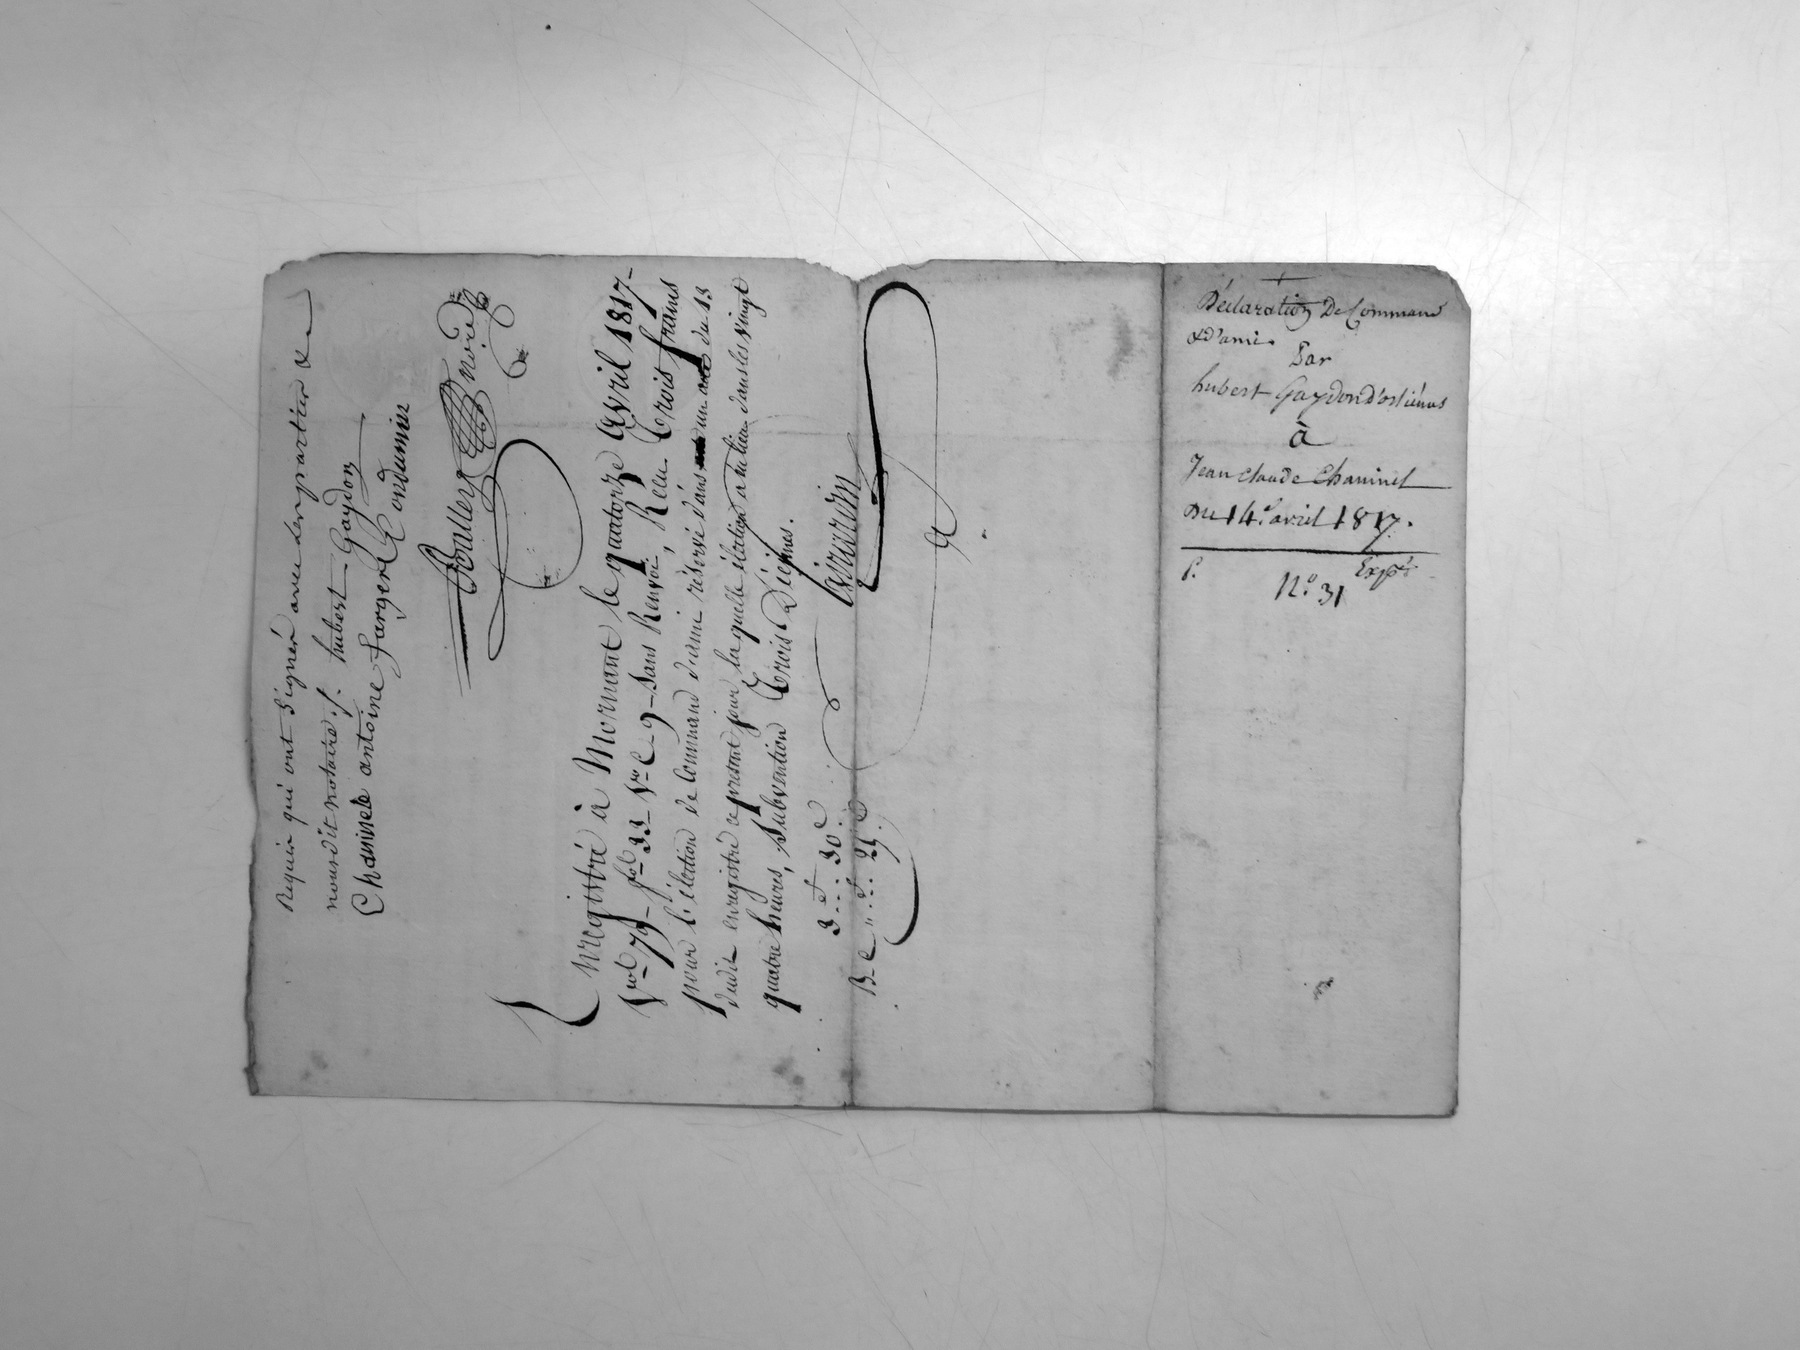 Requis qui ont signé avec les parties &
nous dit notaire /. hubert Gaydon
Chaninet antoine fargere Condamin
Boiullery noire
Enregistré à Mornant le quatorze avril 1817
vol 79 fo 33 vo C 9 Sans Renvoi, Reçu trois francs
pour l'élection de Command d'ami réservé dans un acte du 13
dudit enregistré ce présent jour la quelle élection a eu lieu dans les vingt
quatre heures, Subvention Trois Décimes.
3 f .. 30 c
Girardin
Déclaration De Command
& d'ami.
Par
hubert Gaydon d'orliénas
à
Jean Claude Chaninet
Du 14 avril 1817.
Expé
P.
N.o 31